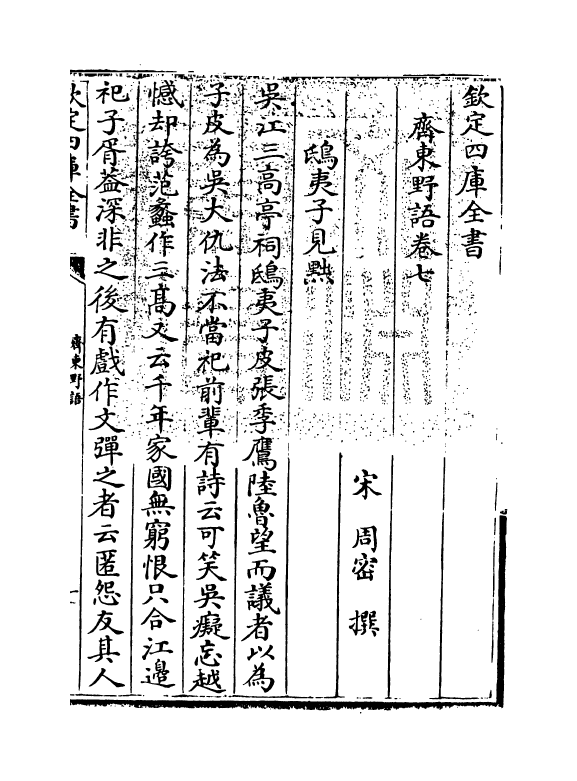 欽定四庫全書
齊東野語卷七
宋 周密 撰
鴟夷子見黜
吳江三高亭祠鴟夷子皮張季鷹陸魯望而議者以為
子皮為吳大仇法不當祀前輩有詩云可笑吳癡忘越
憾却誇范蠡作三髙又云千年家國無窮恨只合江邊
祀子胥葢深非之後有戲作文彈之者云匿怨友其人
欽定四庫全書
齊東野語